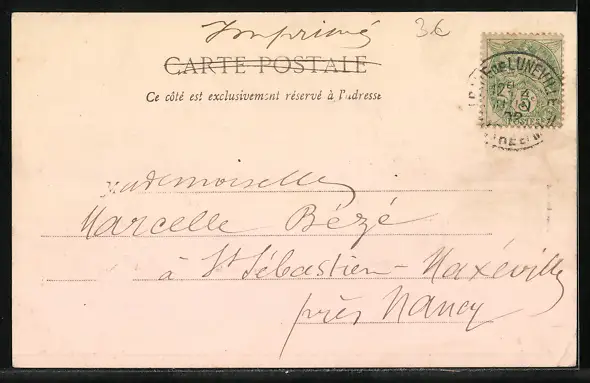 Imprimé
3€
CARTE POSTALE
Ce côté est exclusivement réservé à l'adresse
DE LUNEVILLE
12
POSTES
Mademoiselle
Marcelle Bézé
à St Sébastien - Maxéville
près Nancy